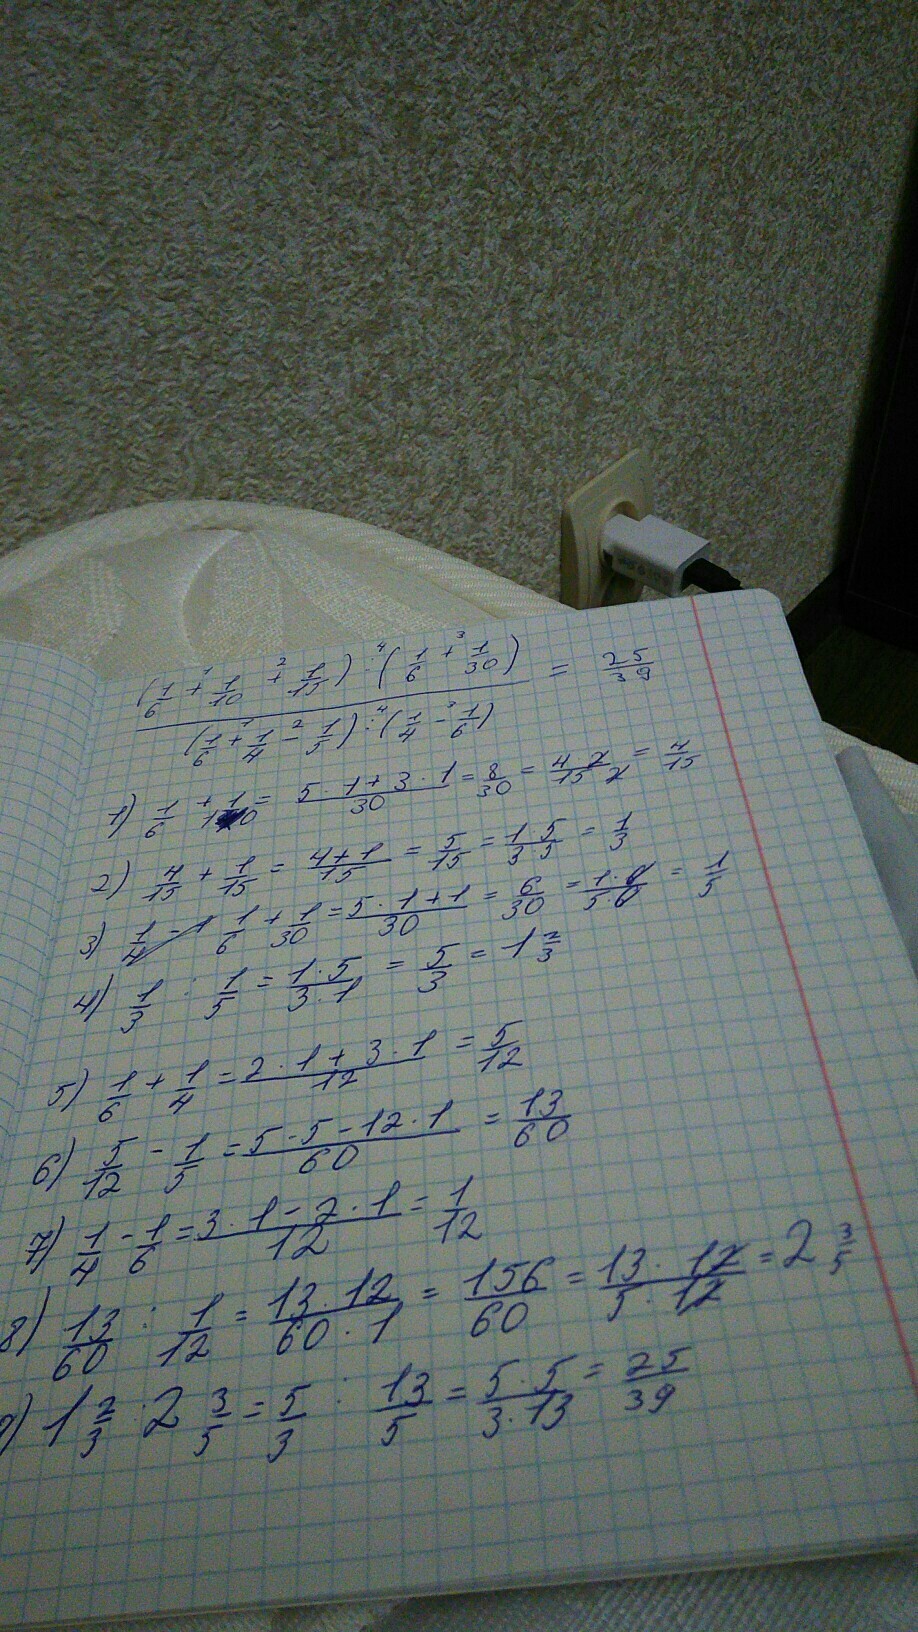 (1/6 +¹ 1/10 +² 1/15) :⁴ (1/6 +³ 1/30)
/ (1/6 +¹ 1/4 -² 1/5) :⁴ (1/4 -³ 1/6) = 25/39
1) 1/6 + 1/10 = 5·1+3·1/30 = 8/30 = 4·2/15·2 = 4/15
2) 4/15 + 1/15 = 4+1/15 = 5/15 = 1·5/3·5 = 1/3
3) 1/6 + 1/30 = 5·1+1/30 = 6/30 = 1·6/5·6 = 1/5
4) 1/3 : 1/5 = 1·5/3·1 = 5/3 = 1 2/3
5) 1/6 + 1/4 = 2·1+3·1/12 = 5/12
6) 5/12 - 1/5 = 5·5-12·1/60 = 13/60
7) 1/4 - 1/6 = 3·1-2·1/12 = 1/12
8) 13/60 : 1/12 = 13·12/60·1 = 156/60 = 13·12/5·12 = 2 3/5
9) 1 2/3 : 2 3/5 = 5/3 : 13/5 = 5·5/3·13 = 25/39